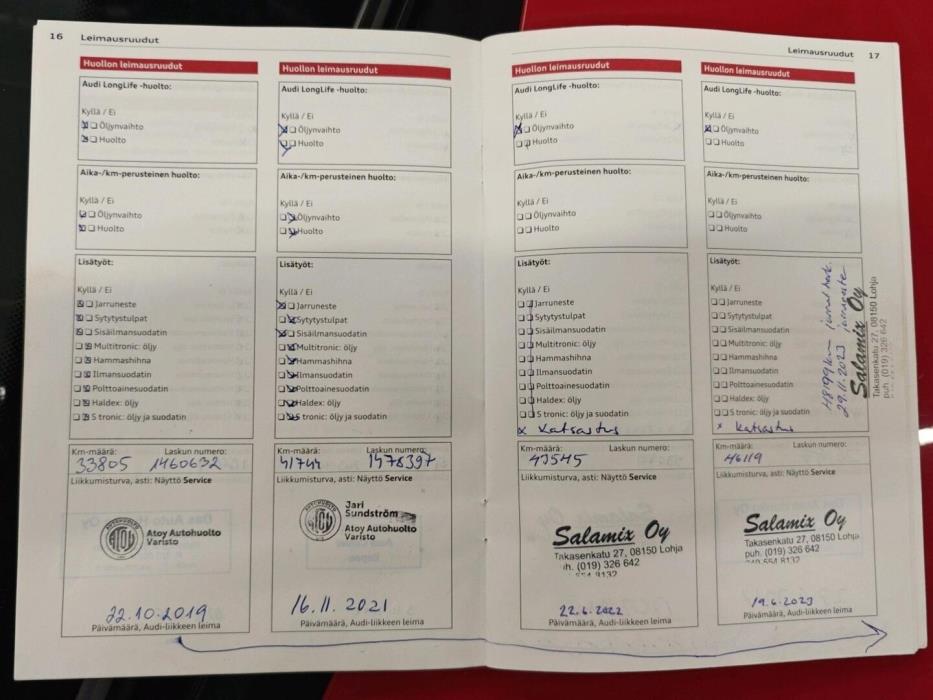 16 Leimausruudut
Huollon leimausruudut
Audi LongLife -huolto:
Kyllä / Ei
Öljynvaihto
Huolto
Aika-/km-perusteinen huolto:
Kyllä / Ei
Öljynvaihto
Huolto
Lisätyöt:
Kyllä / Ei
Jarruneste
Sytytystulpat
Sisäilmansuodatin
Multitronic: öljy
Hammashihna
Ilmansuodatin
Polttoainesuodatin
Haldex: öljy
S tronic: öljy ja suodatin
Km-määrä: Laskun numero:
33805 1460632
Liikkumisturva, asti: Näyttö Service
ATOY
Atoy Autohuolto
Varisto
22.10.2019
Päivämäärä, Audi-liikkeen leima
Huollon leimausruudut
Audi LongLife -huolto:
Kyllä / Ei
Öljynvaihto
Huolto
Aika-/km-perusteinen huolto:
Kyllä / Ei
Öljynvaihto
Huolto
Lisätyöt:
Kyllä / Ei
Jarruneste
Sytytystulpat
Sisäilmansuodatin
Multitronic: öljy
Hammashihna
Ilmansuodatin
Polttoainesuodatin
Haldex: öljy
S tronic: öljy ja suodatin
Km-määrä: Laskun numero:
41744 1478397
Liikkumisturva, asti: Näyttö Service
Jari
Sundström
Atoy Autohuolto
Varisto
16.11.2021
Päivämäärä, Audi-liikkeen leima
Leimausruudut 17
Huollon leimausruudut
Audi LongLife -huolto:
Kyllä / Ei
Öljynvaihto
Huolto
Aika-/km-perusteinen huolto:
Kyllä / Ei
Öljynvaihto
Huolto
Lisätyöt:
Kyllä / Ei
Jarruneste
Sytytystulpat
Sisäilmansuodatin
Multitronic: öljy
Hammashihna
Ilmansuodatin
Polttoainesuodatin
Haldex: öljy
S tronic: öljy ja suodatin
x Katsastus
Km-määrä: Laskun numero:
43545
Liikkumisturva, asti: Näyttö Service
Salamix Oy
Takasenkatu 27, 08150 Lohja
(019) 326 642
22.6.2022
Päivämäärä, Audi-liikkeen leima
Huollon leimausruudut
Audi LongLife -huolto:
Kyllä / Ei
Öljynvaihto
Huolto
Aika-/km-perusteinen huolto:
Kyllä / Ei
Öljynvaihto
Huolto
Lisätyöt:
Kyllä / Ei
Jarruneste
Sytytystulpat
Sisäilmansuodatin
Multitronic: öljy
Hammashihna
Ilmansuodatin
Polttoainesuodatin
Haldex: öljy
S tronic: öljy ja suodatin
x Katsastus
Km-määrä: Laskun numero:
46119
Liikkumisturva, asti: Näyttö Service
Salamix Oy
Takasenkatu 27, 08150 Lohja
puh. (019) 326 642
19.6.2023
Päivämäärä, Audi-liikkeen leima
48199km
29.11.2023 jarruneste
Salamix Oy
Takasenkatu 27, 08150 Lohja
puh. (019) 326 642